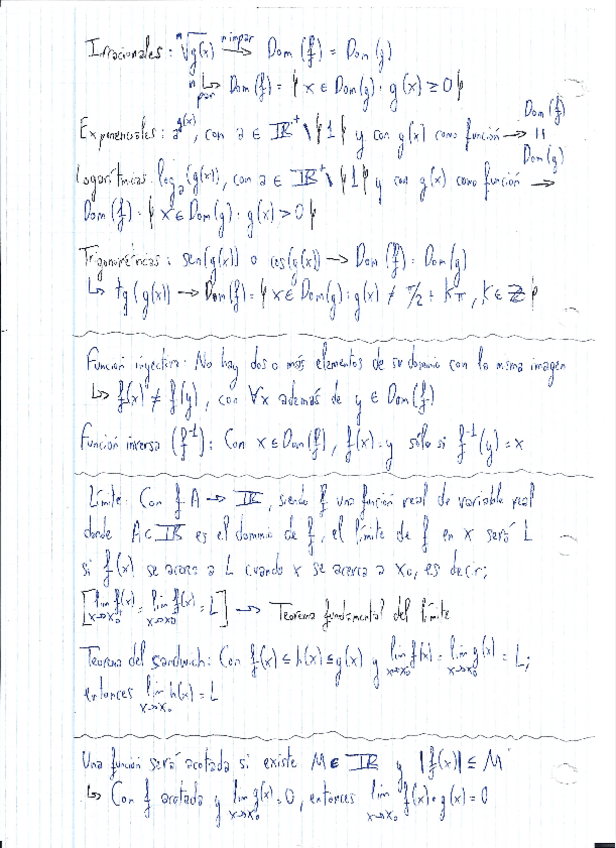 Irracionales: ⁿ√g(x) n impar → Dom(f) = Dom(g)
n par ↳ Dom(f) = { x ∈ Dom(g) : g(x) ≥ 0 }
Exponenciales: a^g(x), con a ∈ ℝ⁺ \ {1} y con g(x) como función → Dom(f) = Dom(g)
Logarítmicas: logₐ(g(x)), con a ∈ ℝ⁺ \ {1} y con g(x) como función →
Dom(f) = { x ∈ Dom(g) : g(x) > 0 }
Trigonométricas: sen(g(x)) o cos(g(x)) → Dom(f) = Dom(g)
↳ tg(g(x)) → Dom(f) = { x ∈ Dom(g) : g(x) ≠ π/2 + Kπ, K ∈ ℤ }
Función inyectiva: No hay dos o más elementos de su dominio con la misma imagen
↳ f(x) ≠ f(y), con ∀x además de y ∈ Dom(f)
Función inversa (f⁻¹): Con x ∈ Dom(f), f(x) = y sólo si f⁻¹(y) = x
Límite: Con f: A → ℝ, siendo f una función real de variable real
donde A ⊂ ℝ es el dominio de f, el límite de f en x será L
si f(x) se acerca a L cuando x se acerca a x₀, es decir;
[lim x→x₀⁺ f(x) = lim x→x₀⁻ f(x) = L] → Teorema fundamental del límite
Teorema del sandwich: Con f(x) ≤ h(x) ≤ g(x) y lim x→x₀ f(x) = lim x→x₀ g(x) = L;
entonces lim x→x₀ h(x) = L
Una función será acotada si existe M ∈ ℝ y |f(x)| ≤ M
↳ Con f acotada y lim x→x₀ g(x) = 0, entonces lim x→x₀ f(x)·g(x) = 0